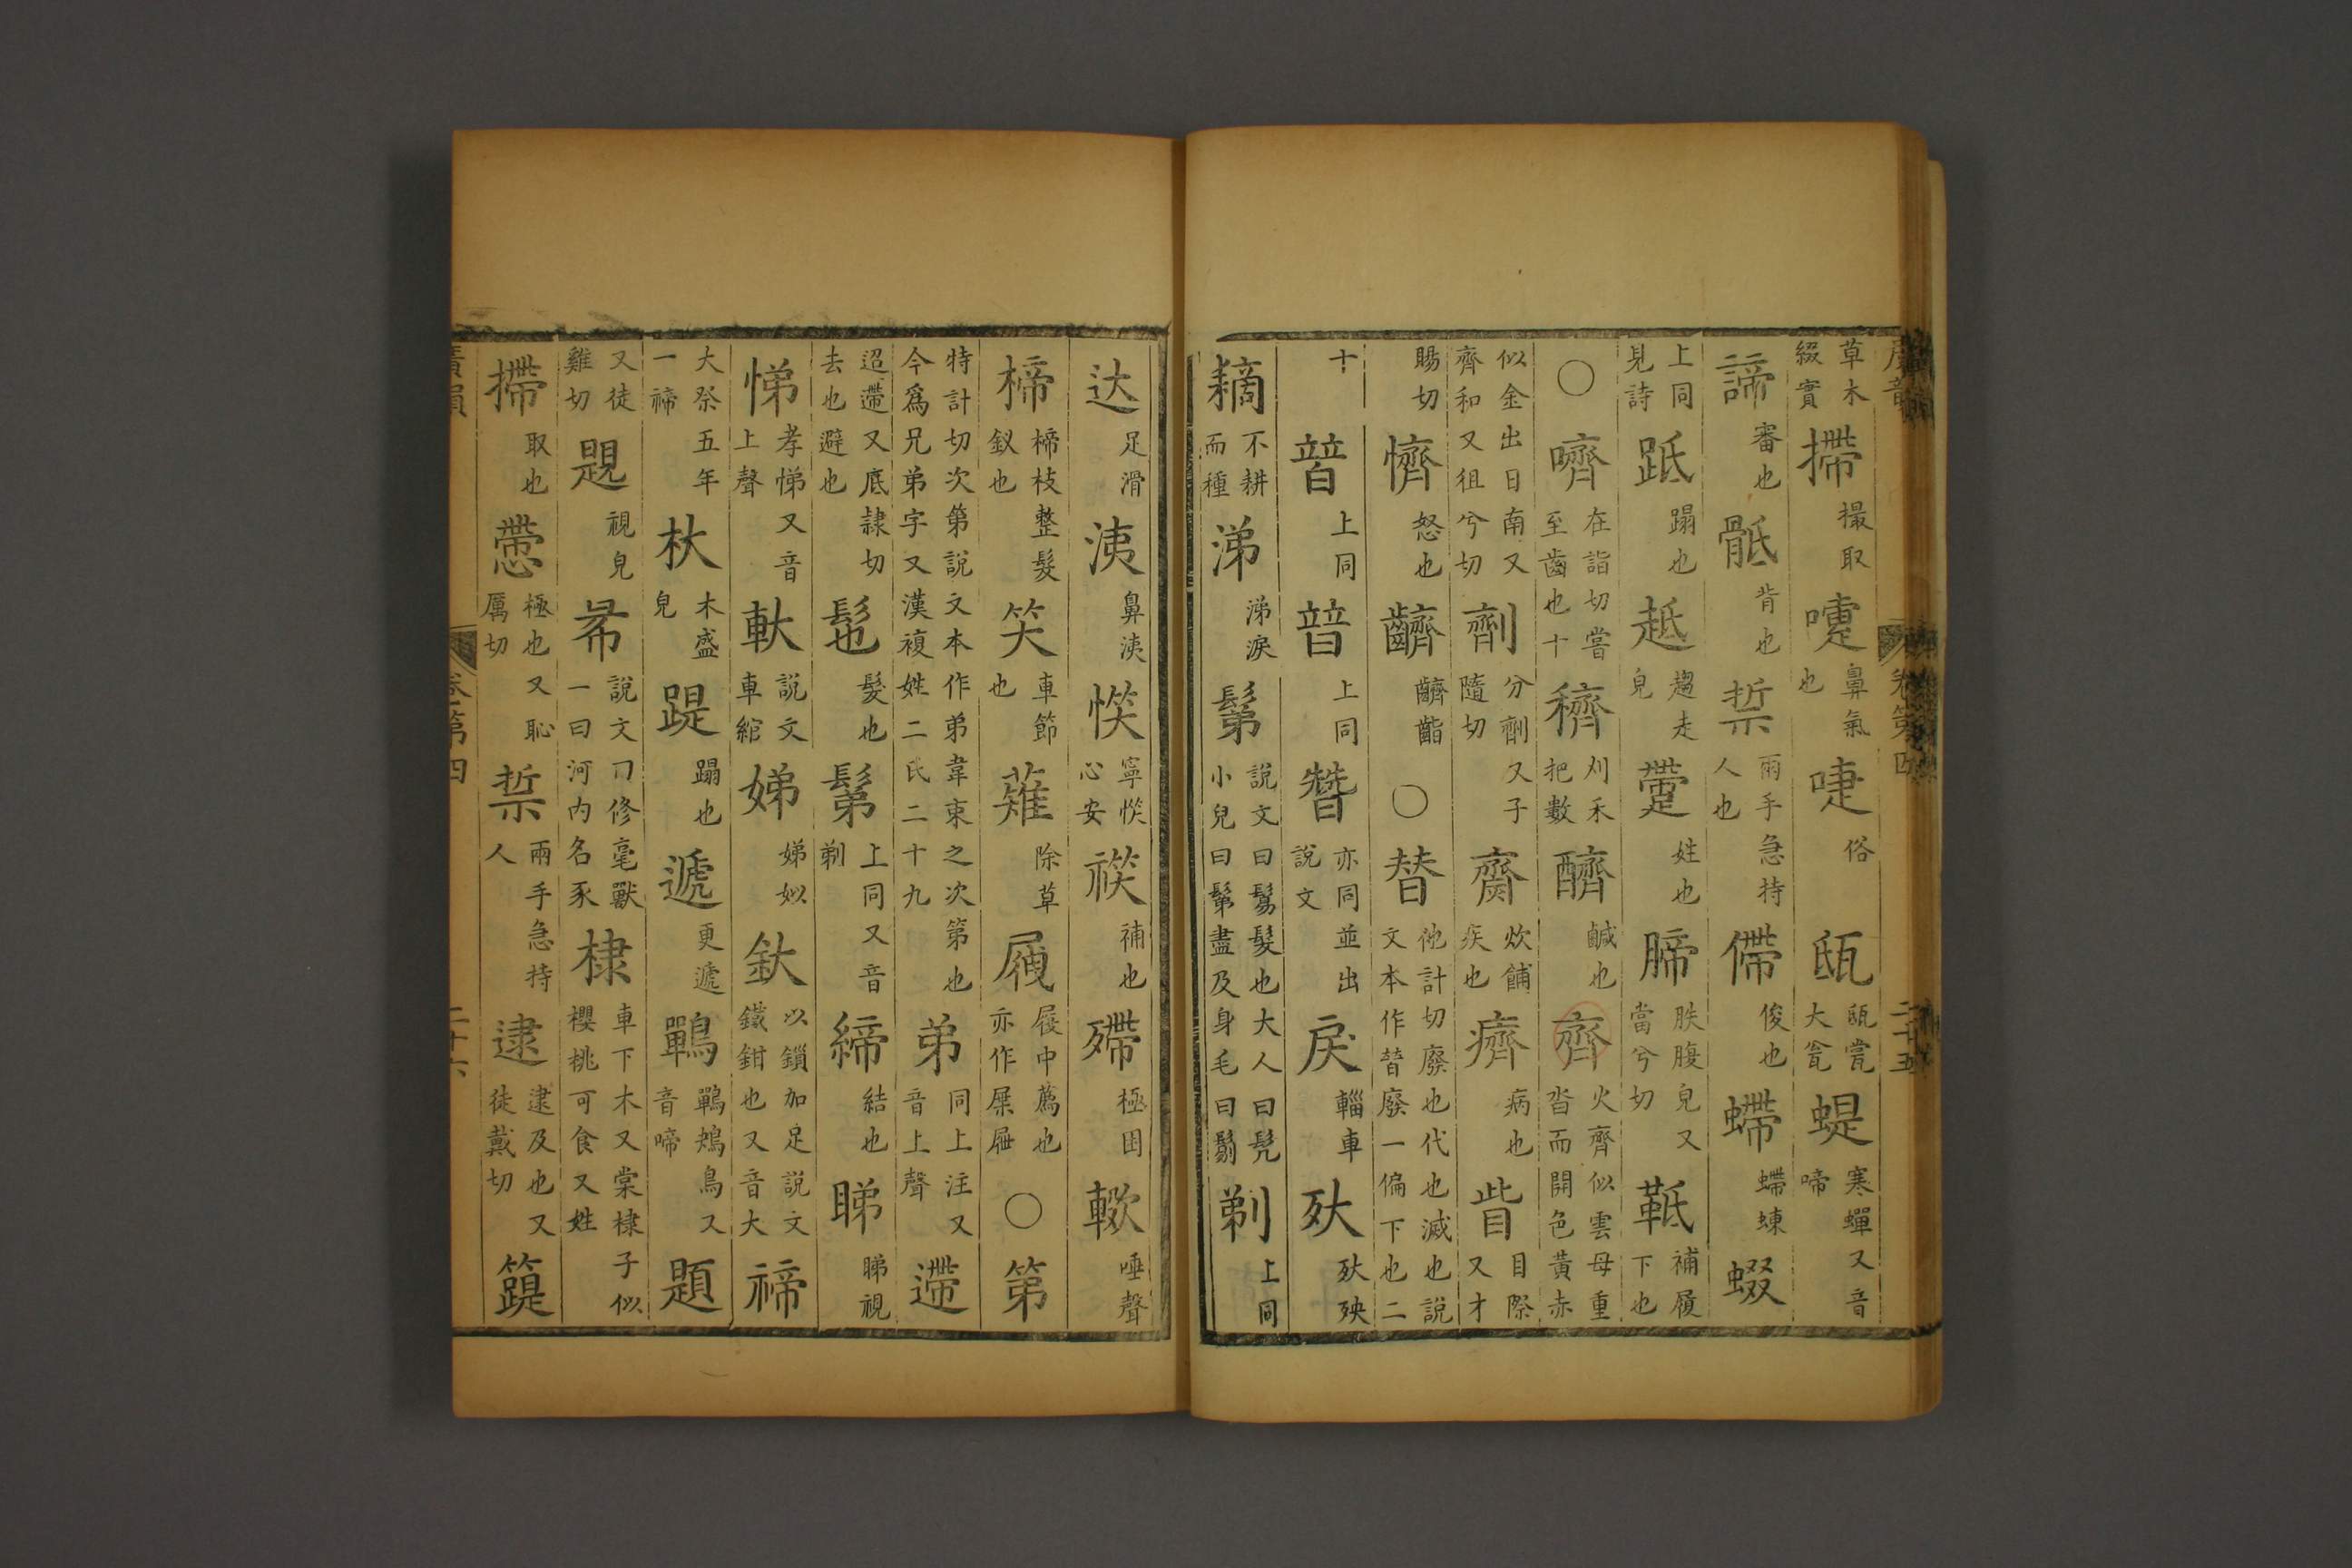 草木綴實 摕 撮取 嚏 鼻氣也 啑 俗 㼵 㼵甞大瓮 蝭 寒蟬又音啼
諦 審也 骶 背也 㨖 兩手急持人也 㿃 俊也 螮 螮蝀 蝃
上同見詩 跮 蹋也 趆 趨走皃 躉 姓也 腣 胅腹皃又當兮切 䩚 補履下也
〇 嚌 在詣切嘗至齒也十 穧 刈禾把數 䶒 鹹也 齊 火齊似雲母重沓而開色黃赤
似金出日南又齊和又徂兮切 劑 分劑又子隨切 齌 炊餔疾也 癠 病也 眥 目際又才
賜切 懠 怒也 齼 〇 替 他計切廢也代也滅也說文本作暜廢一偏下也二
十 暜 上同 㬱 上同 朁 亦同並出說文 戾 輜車 㱦 㱦殃
䅵 不耕而種 涕 涕淚 鬀 說文曰鬄髮也大人曰髡小兒曰鬀盡及身毛曰鬍 剃 上同
达 足滑 洟 鼻洟 㥴 寧㥴心安 䙆 補也 殢 極困 䡺 唾聲
楴 楴枝整髮釵也 䇣 車節也 薙 除草 屜 屧中薦也亦作屟屉 〇 第
特計切次第說文本作弟韋東之次第也今爲兄弟字又漢複姓二氏二十九 弟 同上注又音上聲 遰
迢遰又底隷切去也避也 髢 髮也 鬀 上同又音剃 締 結也 睇 睇視
悌 孝悌又音上聲 軑 說文車輨 娣 娣姒 釱 以鎖加足說文鐵鉗也又音大 禘
大祭五年一禘 杕 木盛皃 踶 蹋也 遞 更遞 鷤 鷤鴂鳥又音啼 題
又徒雞切 䚣 視皃 㣇 說文曰修毫獸一曰河內名豕 棣 車下木又棠棣子似櫻桃可食又姓
摕 取也 㦅 極也又恥厲切 㨖 兩手急持人 逮 逮及也又徒戴切 䈕
卷第四